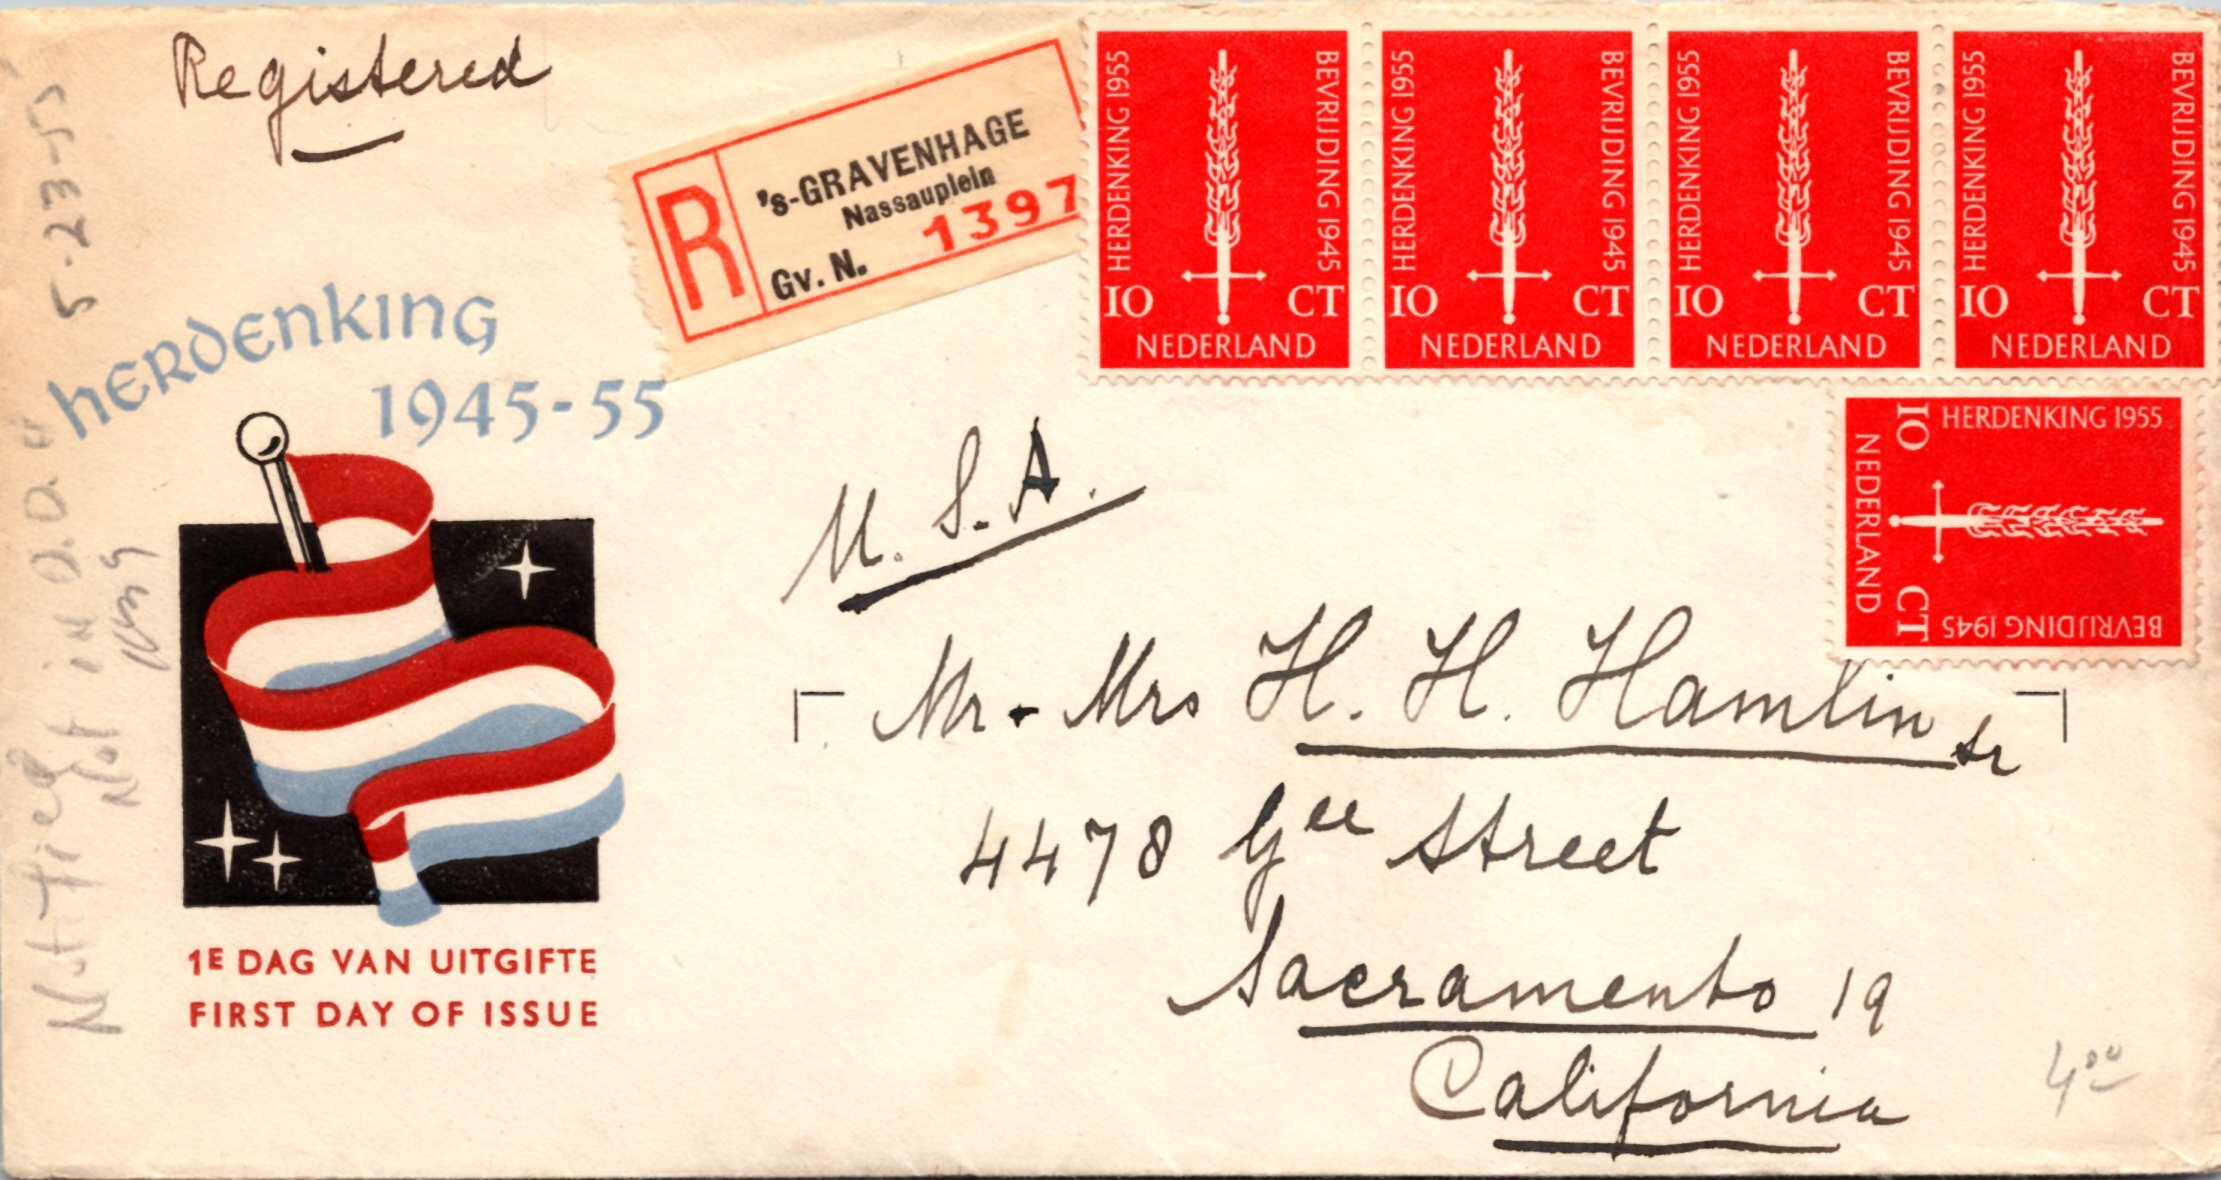 Registered
R
's-GRAVENHAGE
Nassauplein
Gv. N. 1397
HERDENKING 1955
BEVRIJDING 1945
10 CT
NEDERLAND
HERDENKING 1955
BEVRIJDING 1945
10 CT
NEDERLAND
HERDENKING 1955
BEVRIJDING 1945
10 CT
NEDERLAND
HERDENKING 1955
BEVRIJDING 1945
10 CT
NEDERLAND
HERDENKING 1955
BEVRIJDING 1945
10 CT
NEDERLAND
5-23-55
Notified
Not in
herdenking
1945-55
1E DAG VAN UITGIFTE
FIRST DAY OF ISSUE
U.S.A.
Mr. Mrs H. H. Hamlin sr
4478 Gee Street
Sacramento 19
California
4.00